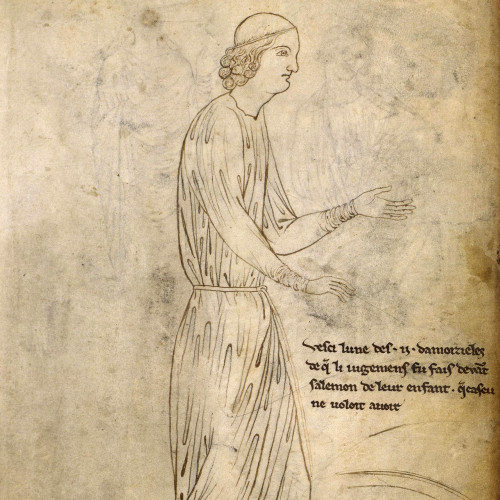 Vesci lune des · ii · damoizieles
de q̃ li iugemens fu fais devãt
salemon de leur enfant · q̃ cascu
ne uoloit auoir